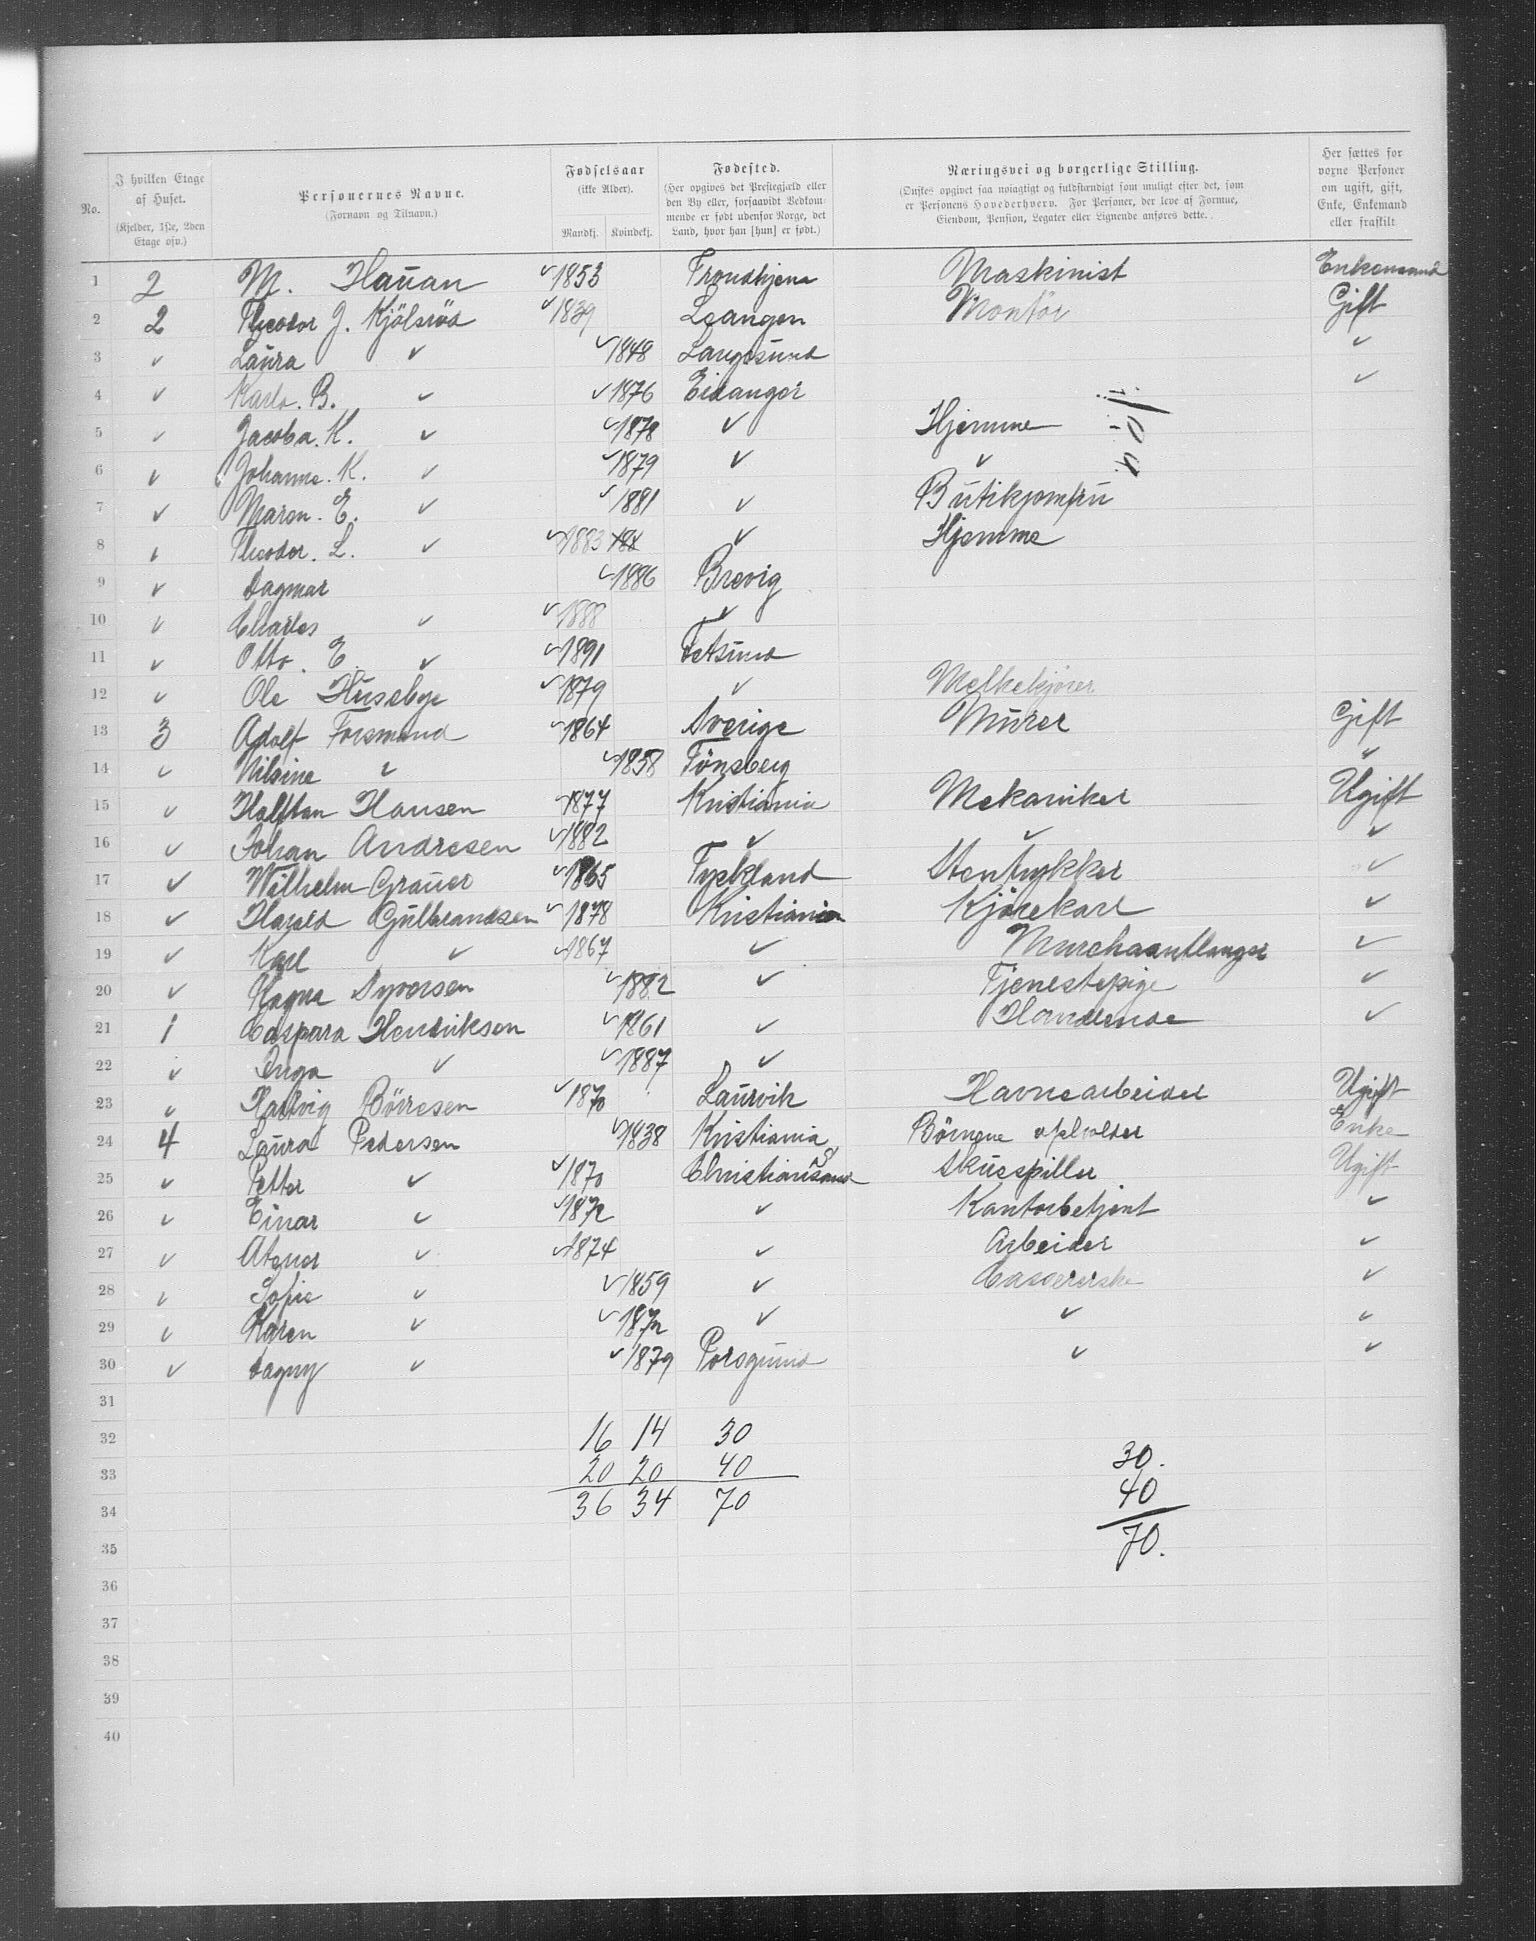 No.
I hvilken Etage af Huset. (Kjelder, 1ste, 2den Etage osv.)
Personernes Navne. (Fornavn og Tilnavn.)
Fødselsaar (ikke Alder). Mandkj. Kvindekj.
Fødested. (Her opgives det Præstegjæld eller den By eller, forsaavidt Vedkommende er født udenfor Norge, det Land, hvor han [hun] er født.)
Næringsvei og borgerlige Stilling. (Ønskes opgivet saa nøiagtigt og fuldstændigt som muligt efter det, som er Personens Hovederhverv. For Personer, der leve af Formue, Eiendom, Pension, Legater eller Lignende anføres dette.
Her sættes for voxne Personer om ugift, gift, Enke, Enkemand eller fraskilt
1 2 M. Hauan ✓1853 Trondhjem Maskinist Enkemand
2 2 Theodor J. Kjölsröd ✓1839 Leangen Montör Gift
3 ✓ Laura ✓ ✓1848 Langesund ✓
4 ✓ Karla. B. ✓ ✓1876 Eidanger ✓
5 ✓ Jacoba. K. ✓ ✓1878 ✓ Hjemme
6 ✓ Johanna. K. ✓ ✓1879 ✓ ✓
7 ✓ Maren. E. ✓ ✓1881 ✓ Butikjomfru
8 ✓ Theodor. L. ✓ ✓1883 188 ✓ Hjemme
9 ✓ Dagmar ✓1886 Brevig
10 ✓ Charles ✓ ✓1888 ✓
11 ✓ Otto. E. ✓ ✓1891 Fetsund
12 ✓ Ole Husebye ✓1879 ✓ Melkekjører
13 3 Adolf Forsmand ✓1864 Sverige Murer Gift
14 ✓ Nilsine ✓ ✓1858 Tönsberg ✓
15 ✓ Halftan Hansen ✓1877 Kristiania Mekaniker Ugift
16 ✓ Johan Andresen ✓1882 ✓ ✓ ✓
17 ✓ Wilhelm Grauer ✓1865 Tyskland Stentrykker ✓
18 ✓ Harald Gulbrandsen ✓1878 Kristiania Kjörekarl ✓
19 ✓ Karl ✓ ✓1867 ✓ Murehaantlanger ✓
20 ✓ Hagna Syversen ✓1882 ✓ Tjenestepige ✓
21 1 Caspara Hendriksen ✓1861 ✓ Handlende ✓
22 ✓ Inga ✓ ✓1887 ✓
23 ✓ Hartvig Börresen ✓1870 Laurvik Havnearbeider Ugift
24 4 Laura Pedersen ✓1838 Kristiania Börnene opholder Enke
25 ✓ Petter ✓ ✓1870 Christianssand Skuespiller Ugift
26 ✓ Einar ✓ ✓1872 ✓ Kontorbetjent ✓
27 ✓ Atenor ✓ ✓1874 ✓ Arbeider ✓
28 ✓ Sofie ✓ ✓1859 ✓ Casererske ✓
29 ✓ Karen ✓ ✓1872 ✓ ✓ ✓
30 ✓ Dagny ✓ ✓1879 Porsgrund ✓ ✓
31
32 16 14 30 30.
33 20 20 40 40
34 36 34 70 70.
35
36
37
38
39
40